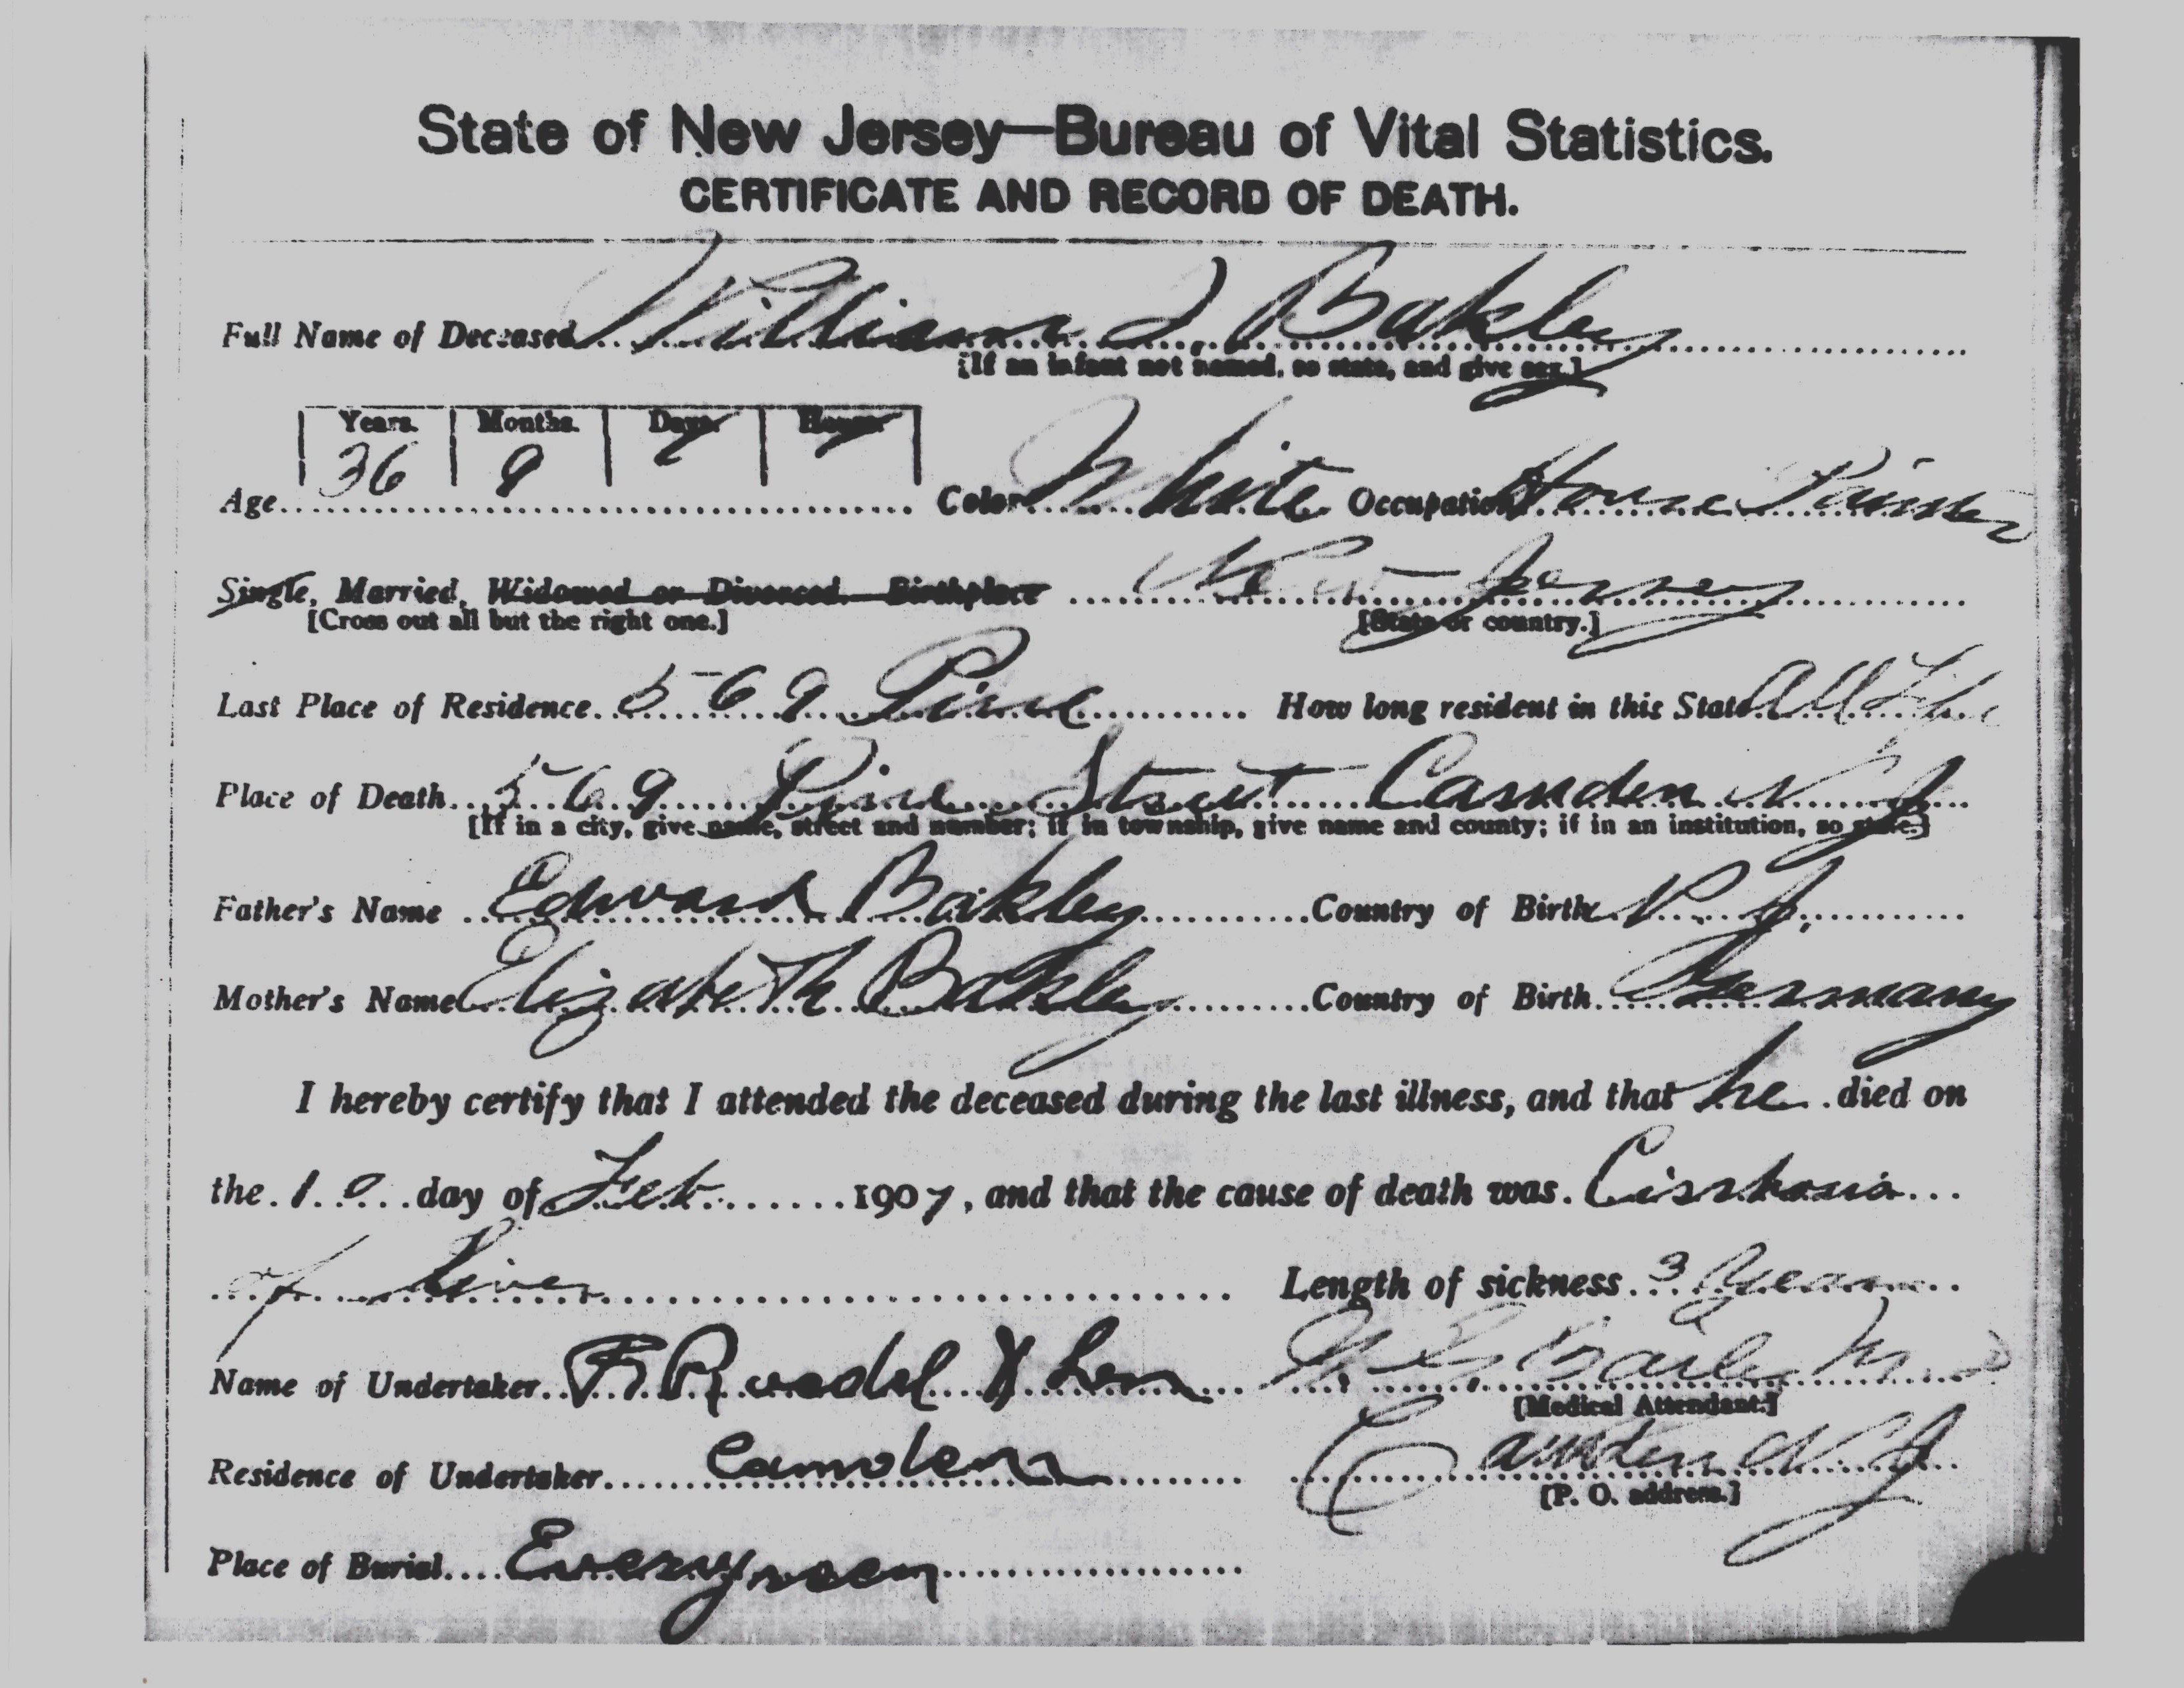 State of New Jersey—Bureau of Vital Statistics.
CERTIFICATE AND RECORD OF DEATH.
Full Name of Deceased William J. Bakley
[If an infant not named, so state, and give sex.]
Years. Months. Days. Hours.
36
Age Color White Occupation House Painter
Single, Married, Widowed or Divorced. Birthplace New Jersey
[Cross out all but the right one.] [State or country.]
Last Place of Residence 569 Pine How long resident in this State All Life
Place of Death 569 Pine Street Camden N J
[If in a city, give name, street and number; if in township, give name and county; if in an institution, so state.]
Father's Name Edward Bakley Country of Birth N. J.
Mother's Name Elizabeth Bakley Country of Birth Germany
I hereby certify that I attended the deceased during the last illness, and that he died on
the 10 day of Feb 1907, and that the cause of death was Cirrhosis
of liver Length of sickness 3 Years
Name of Undertaker F Ruedel & Son
[Medical Attendant.]
Residence of Undertaker Camden Camden N J
[P. O. address.]
Place of Burial Evergreen